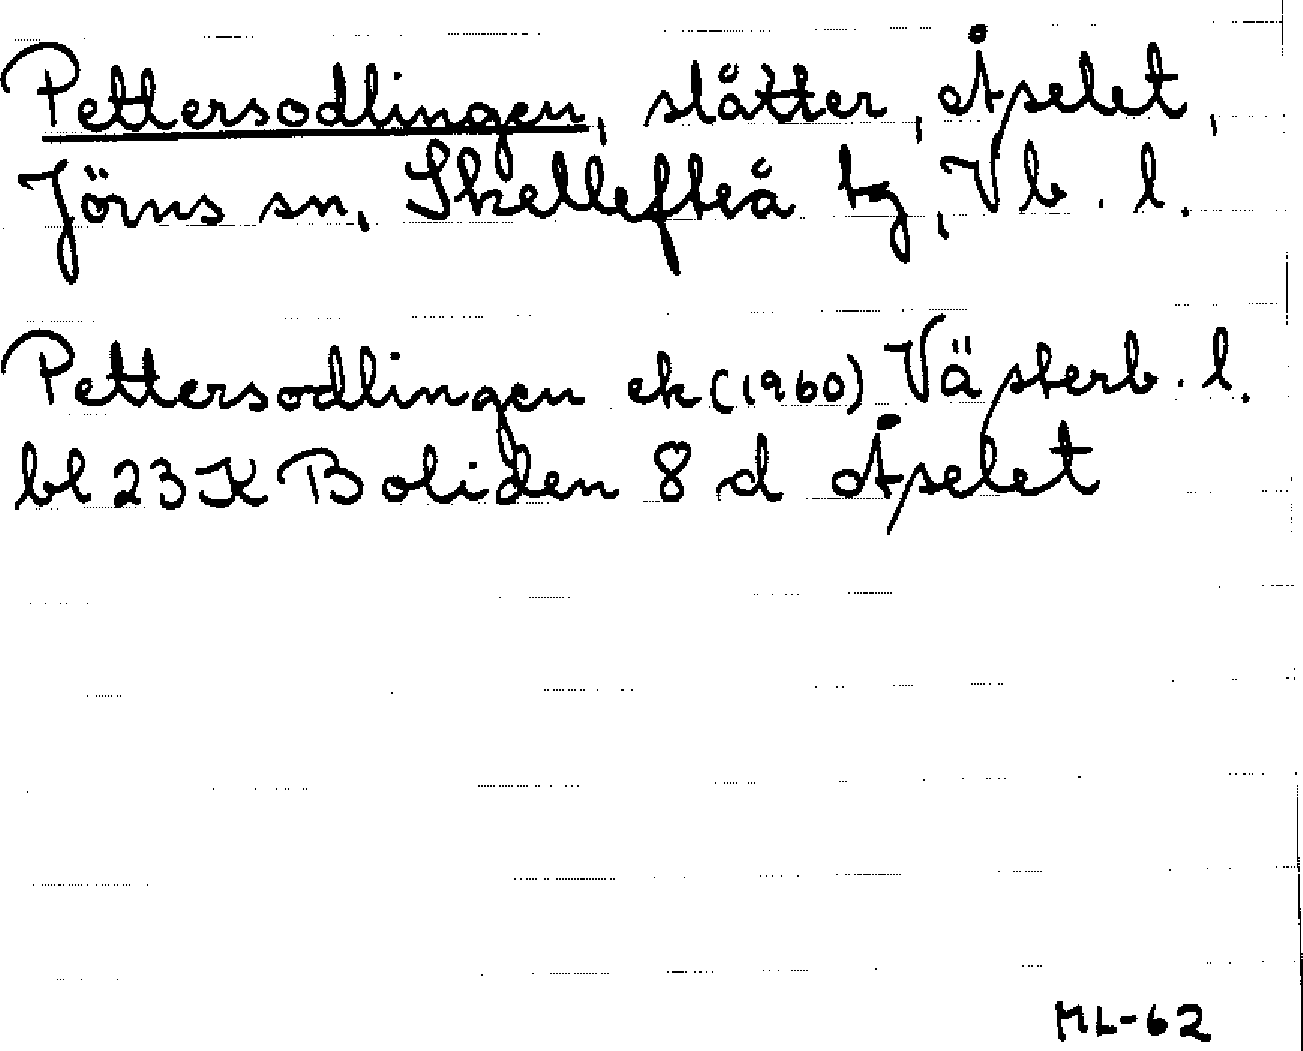 Pettersodlingen, slåtter, Åselet,
Jörns sn, Skellefteå tg, Vb. l.
Pettersodlingen ek (1960) Västerb. l.
bl 23 K Boliden 8 d Åselet
ML-62